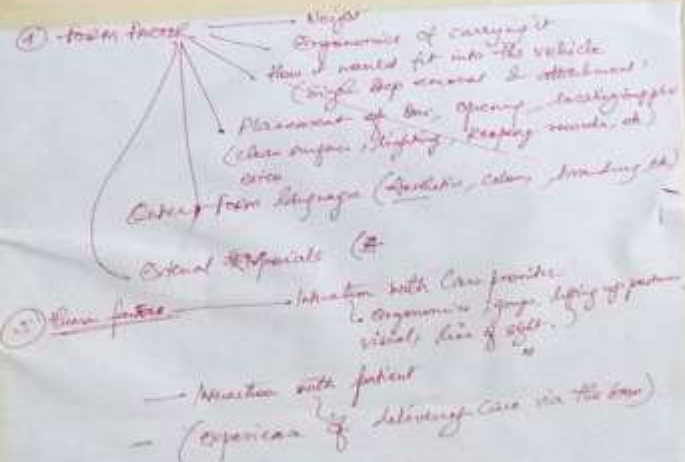 ① Form Factor
Weight
Ergonomics of carrying it
How it would fit into the vehicle
(single step removal & attachment.
Placement of box, opening, locating supplies
(clean surface, lighting, keeping records, etc)
Outer form language (Aesthetics, colour, branding etc)
External Materials (
factors
Interaction with Care provider
ergonomics, lifting up posture,
visual, line of sight.
Interaction with patient
(experience of delivering care via the box)